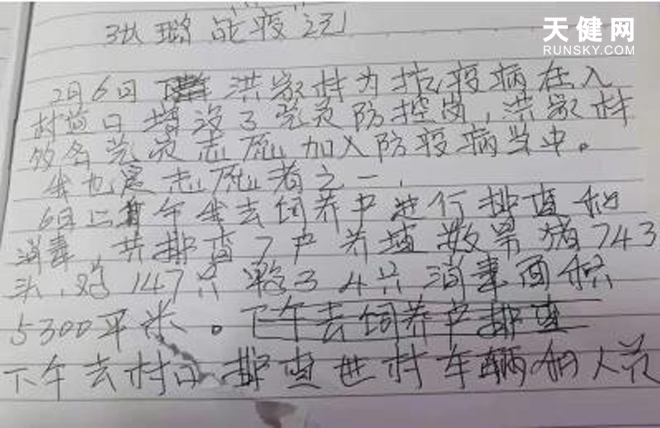 天健网
RUNSKY.COM
张璐战疫记
2月6日 洪家村为抗疫病在入
村路口增设了党员防控岗,洪家村
的名党员志愿加入防疫病当中。
我也是志愿者之一,
6日上午我去饲养户进行排查和
消毒,共排查7户养殖数量猪743
头,鸡147只鹅34只消毒面积
5300平米。下午去饲养户排查
下午去村口排查进村车辆和人员